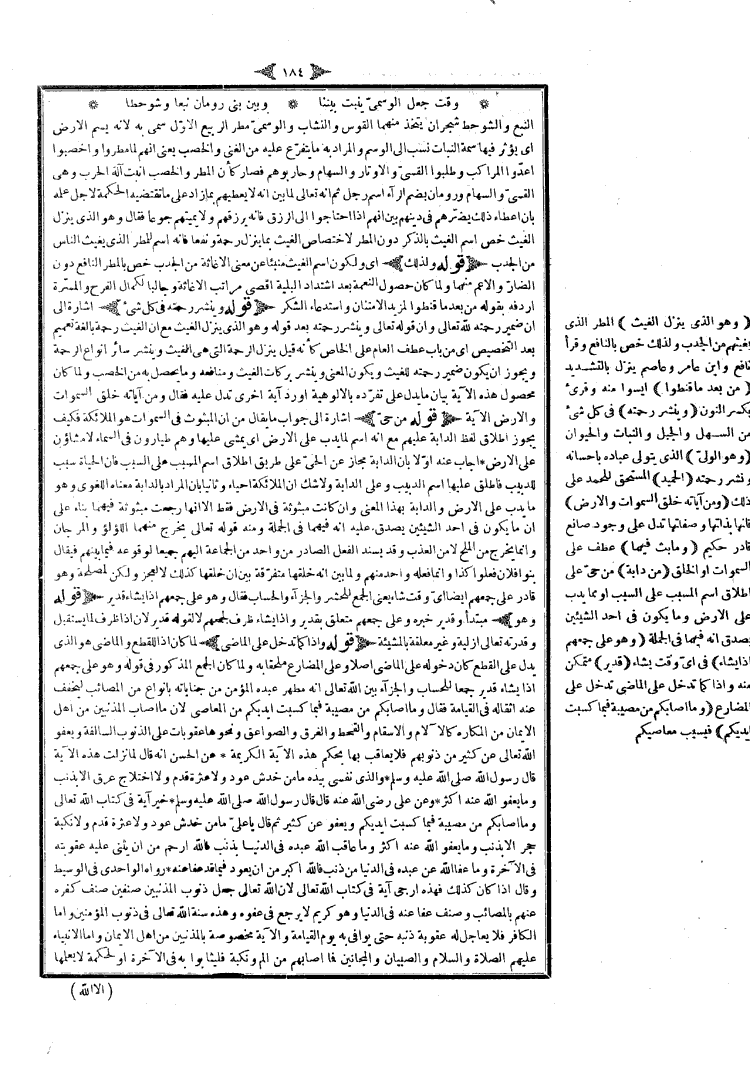 ﴿ ١٨٤ ﴾
* وقت جعل الوسمیّ ینبت بیننا * وبین بنی رومان نبعا وشوحطا *
النبع والشوحط شجران یتخذ منهما القوس والنشاب والوسمیّ مطر الربیع الاوّل سمی به لانه یسم الارض
ای یؤثر فیها سمة النبات نسب الی الوسم والمراد به ما یتفرع علیه من الغنی والخصب یعنی انهم لما مطروا واخصبوا
اعدّوا المراکب وطلبوا القسیّ والاوتار والسهام وحاربوهم فصار کأن المطر والخصب انبت آلة الحرب وهی
القسیّ والسهام ورومان بضم الرآء اسم رجل ثم انه تعالی لما بین انه لا یعطیهم ما زاد علی ما تقتضیه الحکمة لاجل علمه
بان اعطاء ذلک یضرّهم فی دینهم بین انهم اذا احتاجوا الی الرزق فانه یرزقهم ولا یمیتهم جوعا فقال وهو الذی ینزل
الغیث خص اسم الغیث بالذکر دون المطر لاختصاص الغیث بما ینزل رحمة ونفعا فانه اسم للمطر الذی یغیث الناس
من الجدب ﴿ قوله ولذلک ﴾ ای ولکون اسم الغیث منبئا عن معنی الاغاثة من الجدب خص بالمطر النافع دون
الضارّ والاعم منهما ولما کان حصول النعمة بعد اشتداد البلیة اقصی مراتب الاغاثة وجالبا لکمال الفرح والمسرّة
اردفه بقوله من بعد ما قنطوا لمزید الامتنان واستدعاء الشکر ﴿ قوله وینشر رحمته فی کل شیٔ ﴾ اشارة الی
ان ضمیر رحمته للّه تعالی وان قوله تعالی وینشر رحمته بعد قوله وهو الذی ینزل الغیث مع ان الغیث رحمة بالغة تعمیم
بعد التخصیص ای من باب عطف العام علی الخاص کأنه قیل ینزل الرحمة التی هی الغیث وینشر سائر انواع الرحمة
ویجوز ان یکون ضمیر رحمته للغیث ویکون المعنی وینشر برکات الغیث ومنافعه وما یحصل به من الخصب ولما کان
محصول هذه الآیة بیان ما یدل علی تفرّده بالالوهیة اورد آیة اخری تدل علیه فقال ومن آیاته خلق السموات
والارض الآیة ﴿ قوله من حیّ ﴾ اشارة الی جواب ما یقال من ان المبثوث فی السموات هو الملائکة فکیف
یجوز اطلاق لفظ الدابة علیهم مع انه اسم لما یدب علی الارض ای یمشی علیها وهم طیارون فی السماء لا مشاؤن
علی الارض * اجاب عنه اوّلا بان الدابة مجاز عن الحیّ علی طریق اطلاق اسم المسبب علی السبب فان الحیاة سبب
للدبیب فاطلق علیها اسم الدبیب وعلی الدابة ولا شک ان الملائکة احیاء وثانیا بان المراد بالدابة معناه اللغوی وهو
ما یدب علی الارض والدابة بهذا المعنی وان کانت مبثوثة فی الارض فقط الا انها رجعت مبثوثة فیهما بناء علی
ان ما یکون فی احد الشیئین یصدق علیه انه فیهما فی الجملة ومنه قوله تعالی یخرج منهما اللؤلؤ والمرجان
وانما یخرج من الملح لا من العذب وقد یسند الفعل الصادر من واحد من الجماعة الیهم جمیعا لوقوعه فیما بینهم فیقال
بنوا فلان فعلوا کذا وانما فعله واحد منهم ولما بین انه خلقها متفرّقة بین ان خلقها کذلک لا لعجز ولکن لمصلحة وهو
قادر علی جمعهم ایضا ایّ وقت شاء یعنی الجمع للحشر والجزآء والحساب فقال وهو علی جمعهم اذا یشاء قدیر ﴿ قوله
وهو ﴾ مبتدأ وقدیر خبره وعلی جمعهم متعلق بقدیر واذا یشاء ظرف لجمعهم لا لقوله قدیر لان اذا ظرف لما یستقبل
وقدرته تعالی ازلیة وغیر معلقة بالمشیئة ﴿ قوله واذا کما تدخل علی الماضی ﴾ لما کان اذا للقطع والماضی هو الذی
یدل علی القطع کان دخوله علی الماضی اصلا وعلی المضارع ملحقا به ولما کان الجمع المذکور فی قوله وهو علی جمعهم
اذا یشاء قدیر جمعا للحساب والجزآء بین اللّه تعالی انه مطهر عبده المؤمن من جنایاته بانواع من المصائب لیخفف
عنه اثقاله فی القیامة فقال وما اصابکم من مصیبة فبما کسبت ایدیکم من المعاصی لان ما اصاب المذنبین من اهل
الایمان من المکاره کالآلام والاسقام والقحط والغرق والصواعق ونحوها عقوبات علی الذنوب السالفة ویعفو
اللّه تعالی عن کثیر من ذنوبهم فلا یعاقب بها بحکم هذه الآیة الکریمة * عن الحسن انه قال لما نزلت هذه الآیة
قال رسول اللّه صلی اللّه علیه وسلم * والذی نفسی بیده ما من خدش عود ولا عثرة قدم ولا اختلاج عرق الا بذنب
وما یعفو اللّه عنه اکثر * وعن علی رضی اللّه عنه قال قال رسول اللّه صلی اللّه علیه وسلم * خیر آیة فی کتاب اللّه تعالی
وما اصابکم من مصیبة فبما کسبت ایدیکم ویعفو عن کثیر ثم قال یا علیّ ما من خدش عود ولا عثرة قدم ولا نکبة
حجر الا بذنب وما یعفو اللّه عنه اکثر وما عاقب اللّه عبده فی الدنیا بذنب فاللّه ارحم من ان یثنی علیه عقوبته
فی الآخرة وما عفا اللّه عن عبده فی الدنیا من ذنب فاللّه اکبر من ان یعود فیما قد عفا عنه * رواه الواحدی فی الوسیط
وقال اذا کان کذلک فهذه ارجی آیة فی کتاب اللّه تعالی لان اللّه تعالی جعل ذنوب المذنبین صنفین صنف کفره
عنهم بالمصائب وصنف عفا عنه فی الدنیا وهو کریم لا یرجع فی عفوه وهذه سنة اللّه تعالی فی ذنوب المؤمنین واما
الکافر فلا یعاجل له عقوبة ذنبه حتی یوافی به یوم القیامة والآیة مخصوصة بالمذنبین من اهل الایمان واما الانبیاء
علیهم الصلاة والسلام والصبیان والمجانین فما اصابهم من الم ونکبة فلیثابوا به فی الآخرة او لحکمة لا یعلمها
( الا اللّه )
( وهو الذی ینزل الغیث ) المطر الذی
یغیثهم من الجدب ولذلک خص بالنافع وقرأ
نافع وابن عامر وعاصم ینزل بالتشدید
( من بعد ما قنطوا ) ایسوا منه وقرئ
بکسر النون ( وینشر رحمته ) فی کل شیٔ
من السهل والجبل والنبات والحیوان
( وهو الولیّ ) الذی یتولی عباده باحسانه
ونشر رحمته ( الحمید ) المستحق للحمد علی
ذلک ( ومن آیاته خلق السموات والارض )
فانها بذاتها وصفاتها تدل علی وجود صانع
قادر حکیم ( وما بث فیهما ) عطف علی
السموات او الخلق ( من دابة ) من حیّ علی
اطلاق اسم المسبب علی السبب او مما یدب
علی الارض وما یکون فی احد الشیئین
یصدق انه فیهما فی الجملة ( وهو علی جمعهم
اذا یشاء ) فی ایّ وقت یشاء ( قدیر ) متمکن
منه واذا کما تدخل علی الماضی تدخل علی
المضارع ( وما اصابکم من مصیبة فبما کسبت
ایدیکم ) فبسبب معاصیکم